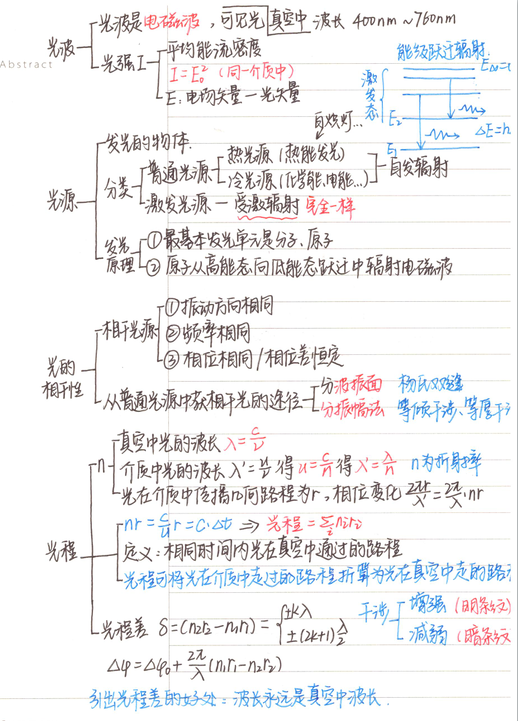 光波是电磁波，可见光真空中波长 400nm ~760nm
光波
Abstract
光强I
平均能流密度
I=E₀² (同一个质中)
E：电场矢量—光矢量
能级跃迁辐射.
激发态
E₂
E₁
ΔE=h
光源
发光的物体.
白炽灯...
分类
普通光源
热光源 (热能发光)
冷光源 (化学能、电能...)
自发辐射
激发光源 — 受激辐射 完全一样
发光原理
①最基本发光单元是分子、原子
② 原子从高能态向低能态跃迁中辐射电磁波
光的相干性
相干光源
①振动方向相同
②频率相同
③ 相位相同/相位差恒定
从普通光源中获相干光的途径
分波振面 杨氏双缝
分振幅法 等倾干涉、等厚干
光程
n
真空中光的波长 λ=c/ν
介质中光的波长 λ'=u/ν 得 u=c/n 得 λ'=λ/n n为折射率
光在介质中传播几何路程为r，相位变化 2πr/λ'=2π/λ·nr
nr=c/u r=c·Δt ⇒ 光程=Σnᵢrᵢ
定义：相同时间内光在真空中通过的路程
光程可将光在介质中走过的路程折算为光在真空中走的路
光程差 δ=(n₂r₂-n₁r₁)= { ±kλ
±(2k+1)λ/2
干涉
增强 (明条纹)
减弱 (暗条纹
Δφ=Δφ₀+2π/λ(n₁r₁-n₂r₂)
引出光程差的好处：波长永远是真空中波长.